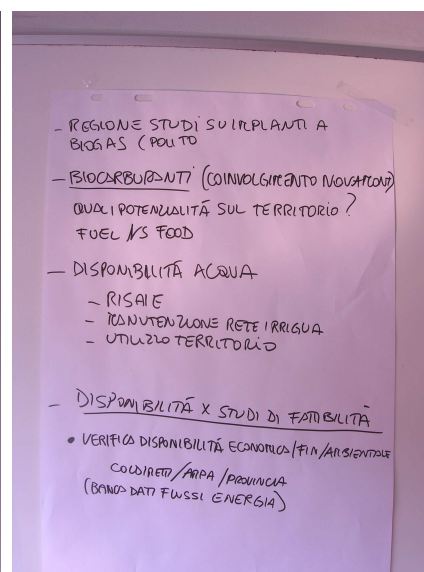 - REGIONE STUDI SU IMPLANTI A
BIOGAS (POLITO
- BIOCARBURANTI (COINVOLGIMENTO NOVAMONT)
QUALI POTENZIALITÁ SUL TERRITORIO?
FUEL VS FOOD
- DISPONIBILITÁ ACQUA
- RISAIE
- MANUTENZIONE RETE IRRIGUA
- UTILIZZO TERRITORIO
- DISPONIBILITÁ X STUDI DI FATTIBILITÁ
• VERIFICA DISPONIBILITÁ ECONOMICA/FIN/AMBIENTALE
COLDIRETTI/ARPA/PROVINCIA
(BANCA DATI FLUSSI ENERGIA)